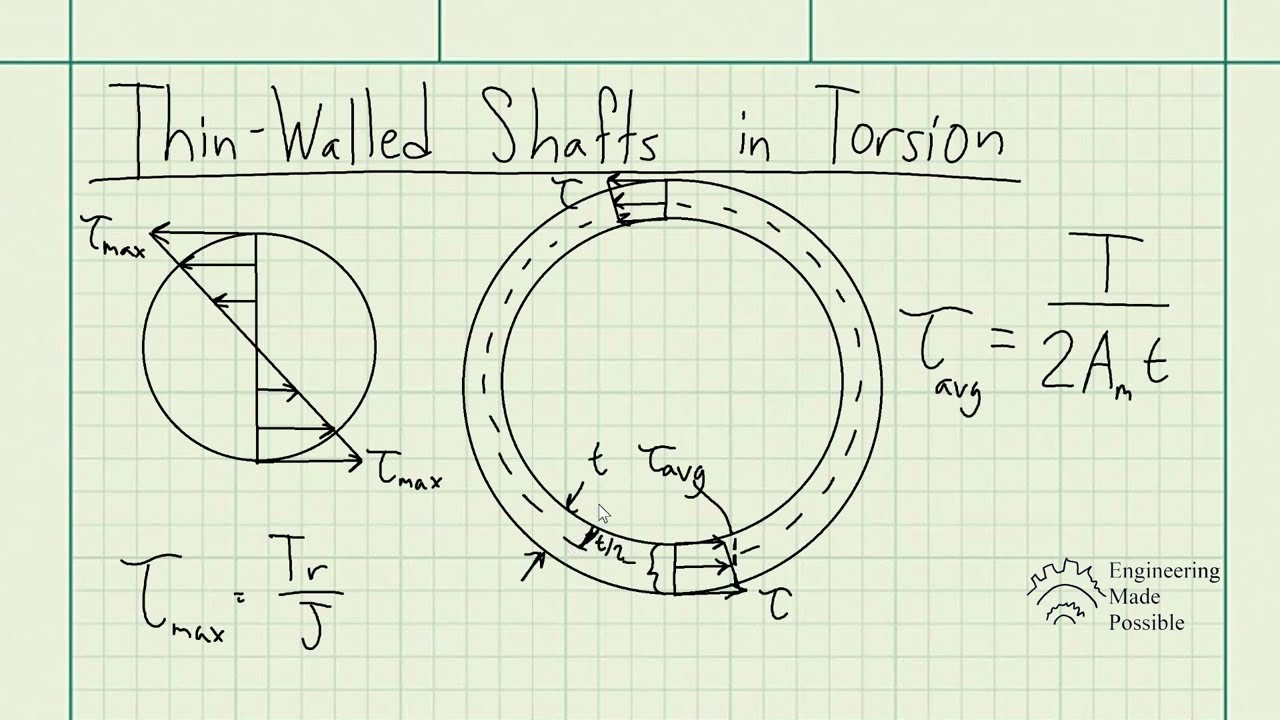 Thin-Walled Shafts in Torsion
τ
τmax
τavg = T / 2Amt
t τavg
τmax
t/2
τmax = Tr / J
τ
Engineering
Made
Possible